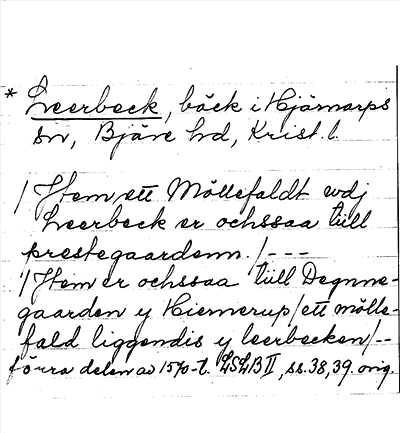 * Leerbeck, bäck i Hjärnarps
sn, Bjäre hd, Krist. l.
/ Jtem ett Möllefaldt wdj
Leerbeck er ochssaa tiill
prestegaardenn. /---
/ Jtem er ochssaa tiill Degnne-
gaarden y Hiernerup / ett mölle-
fald liggendis y leerbecken /--
förra delen av 1570-t. LSLB II, ss. 38, 39. orig.